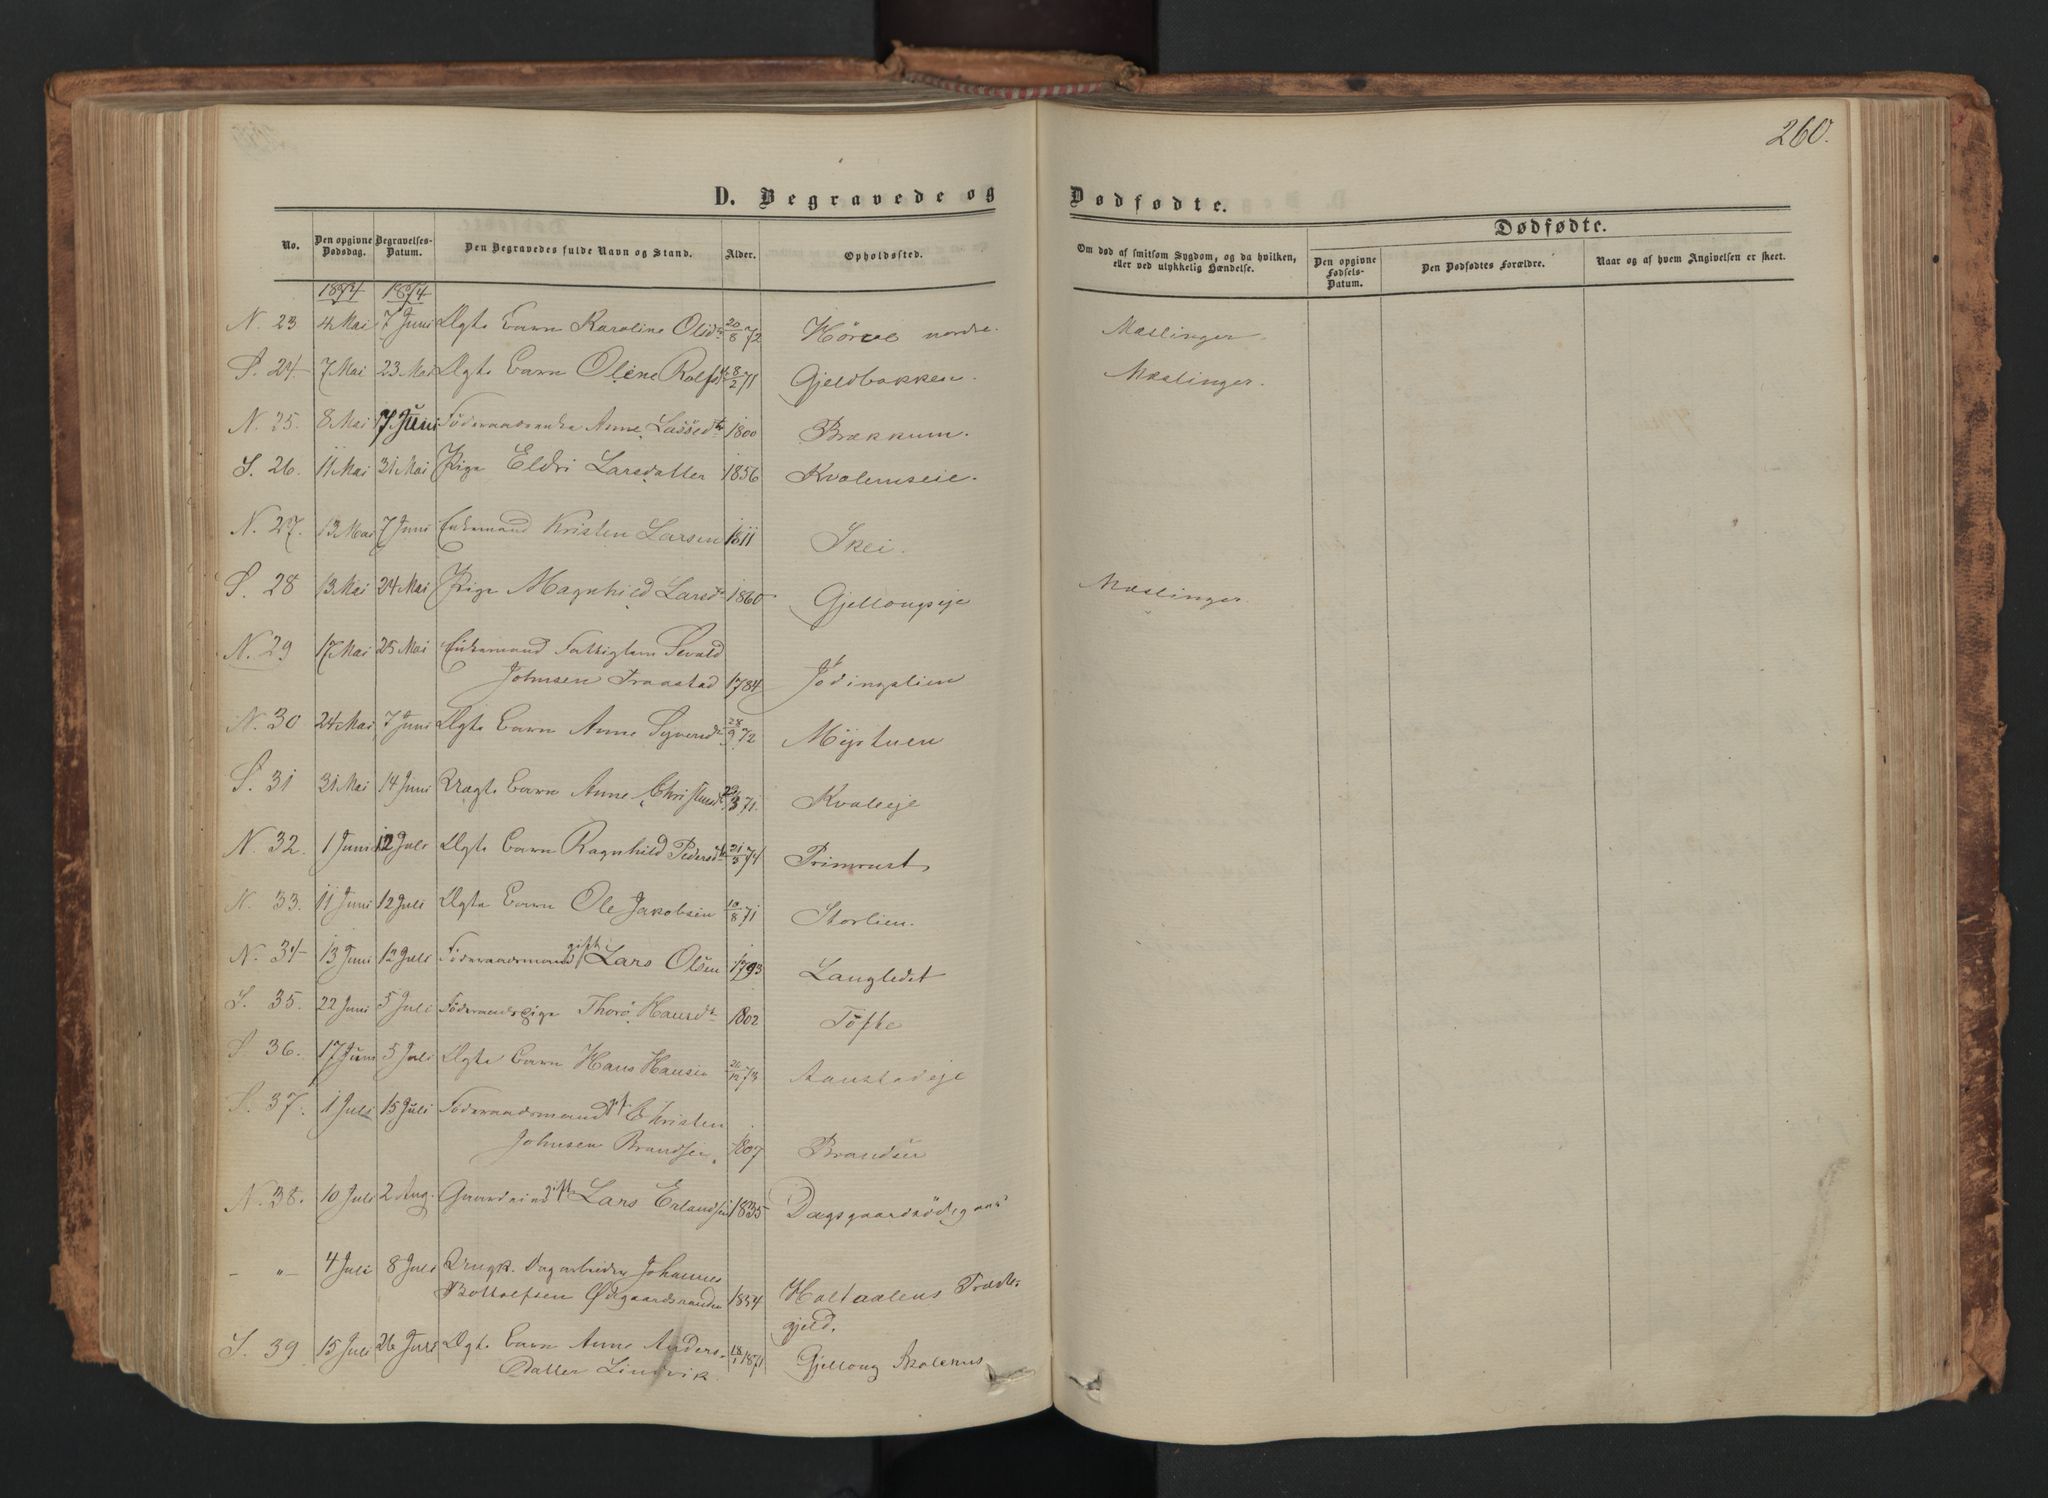 260.
D. Begravede og Dødfødte.
No. Den opgivne Dødsdag. Begravelses-Datum. Den Begravedes fulde Navn og Stand. Alder. Opholdssted. Om død af smitsom Sygdom, og da hvilken, eller ved ulykkelig Hændelse.
Dødfødte.
Den opgivne Fødsels-Datum. Den Dødfødtes Forældre. Naar og af hvem Angivelsen er skeet.
1874 1874
N. 23 4 Mai 7 Juni Ægte Barn Karoline Olsdtr 20/8 72 nordre. Mæslinger.
S. 24 7 Mai 23 Mai Ægte Barn Oline Rolfsd 8/2 71 Gjeldbakken. Mæslinger.
N. 25. 8 Mai 17 Juni Föderaadsenke Anne Lassedtr 1800 Brækkum.
S. 26. 11 Mai 31 Mai Pige Eldri Larsdatter 1856 Kvalemseie.
N. 27. 13 Mai 7 Juni Enkemand Kristen Larsen 1811 Skei.
S. 28 13 Mai 24 Mai Pige Magnhild Larsdtr 1860 Gjellongseje Mæslinger
N. 29 17 Mai 25 Mai Enkemand Fattiglem Sevald
Johnsen Traastad 1784 Jödingslien
N. 30 24 Mai 7 Juni Ægte Barn Anne Syversdtr 28/9 72 Mystuen
S. 31 31 Mai 14 Juni Uægte Barn Anne Christensdtr 29/3 71. Kvaleeje
N. 32. 1 Juni 12 Juli Ægte Barn Ragnhild Pedersdtr 21/5 74 Primrust
N. 33. 11 Juni 12 Juli Ægte Barn Ole Jakobsen 10/8 71 Storlien.
N. 34 13 Juni 12 Juli Föderaadsmand gift Lars Olsen 1793 Langledet
S. 35. 22 Juni 5 Juli Föderaadspige Thorö Hansdtr 1802 Töfte
S 36. 17 Juni 5 Juli Ægte Barn Hans Hansen 26/12 73 Aanstadeje
S. 37. 1 Juli 15 Juli Föderaadsmand gft. Christen
Johnsen Brandsen 1807 Brandsen
N. 38. 10 Juli 2 Aug. Gaardeier gift Lars Erlandsen 1835
- „- 4 Juli 8 Juli Ungk. Dagarbeider Johannes
Bottolfsen Ødegaardsranden 1854 Holtaalens Præste-
gjeld.
S. 39 15 Juli 26 Juli Ægte Barn Anne Anders-
datter Lindvik. 18/1 1871 Gjellong